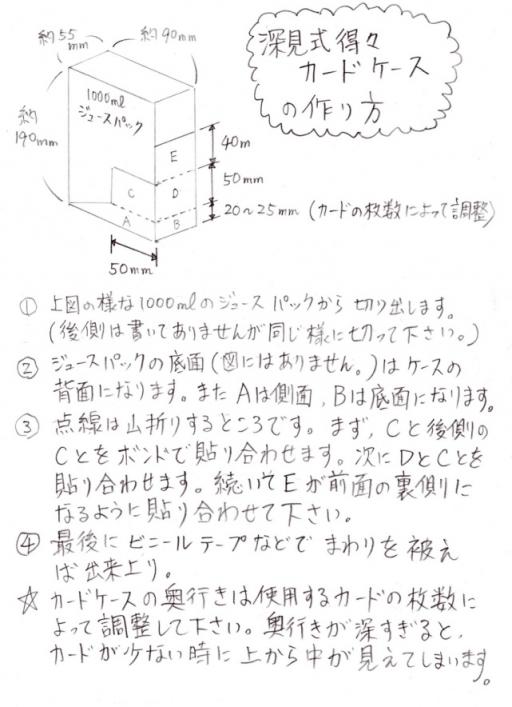 深見式得々
カードケース
の作り方
約55
mm
約90mm
1000ml
ジュースパック
約
190mm
E
C
D
A
B
40m
50mm
20~25mm (カードの枚数によって調整)
50mm
① 上図の様な1000mlのジュースパックから切り出します。
(後側は書いてありませんが同じ様に切って下さい。)
② ジュースパックの底面(図にはありません。)はケースの
背面になります。またAは側面,Bは底面になります。
③ 点線は山折りするところです。まず,Cと後側の
Cとをボンドで貼り合わせます。次にDとCとを
貼り合わせます。続いてEが前面の裏側に
なるように貼り合わせて下さい。
④ 最後にビニールテープなどでまわりを被え
ば出来上り。
☆ カードケースの奥行きは使用するカードの枚数に
よって調整して下さい。奥行きが深すぎると,
カードが少ない時に上から中が見えてしまいます。